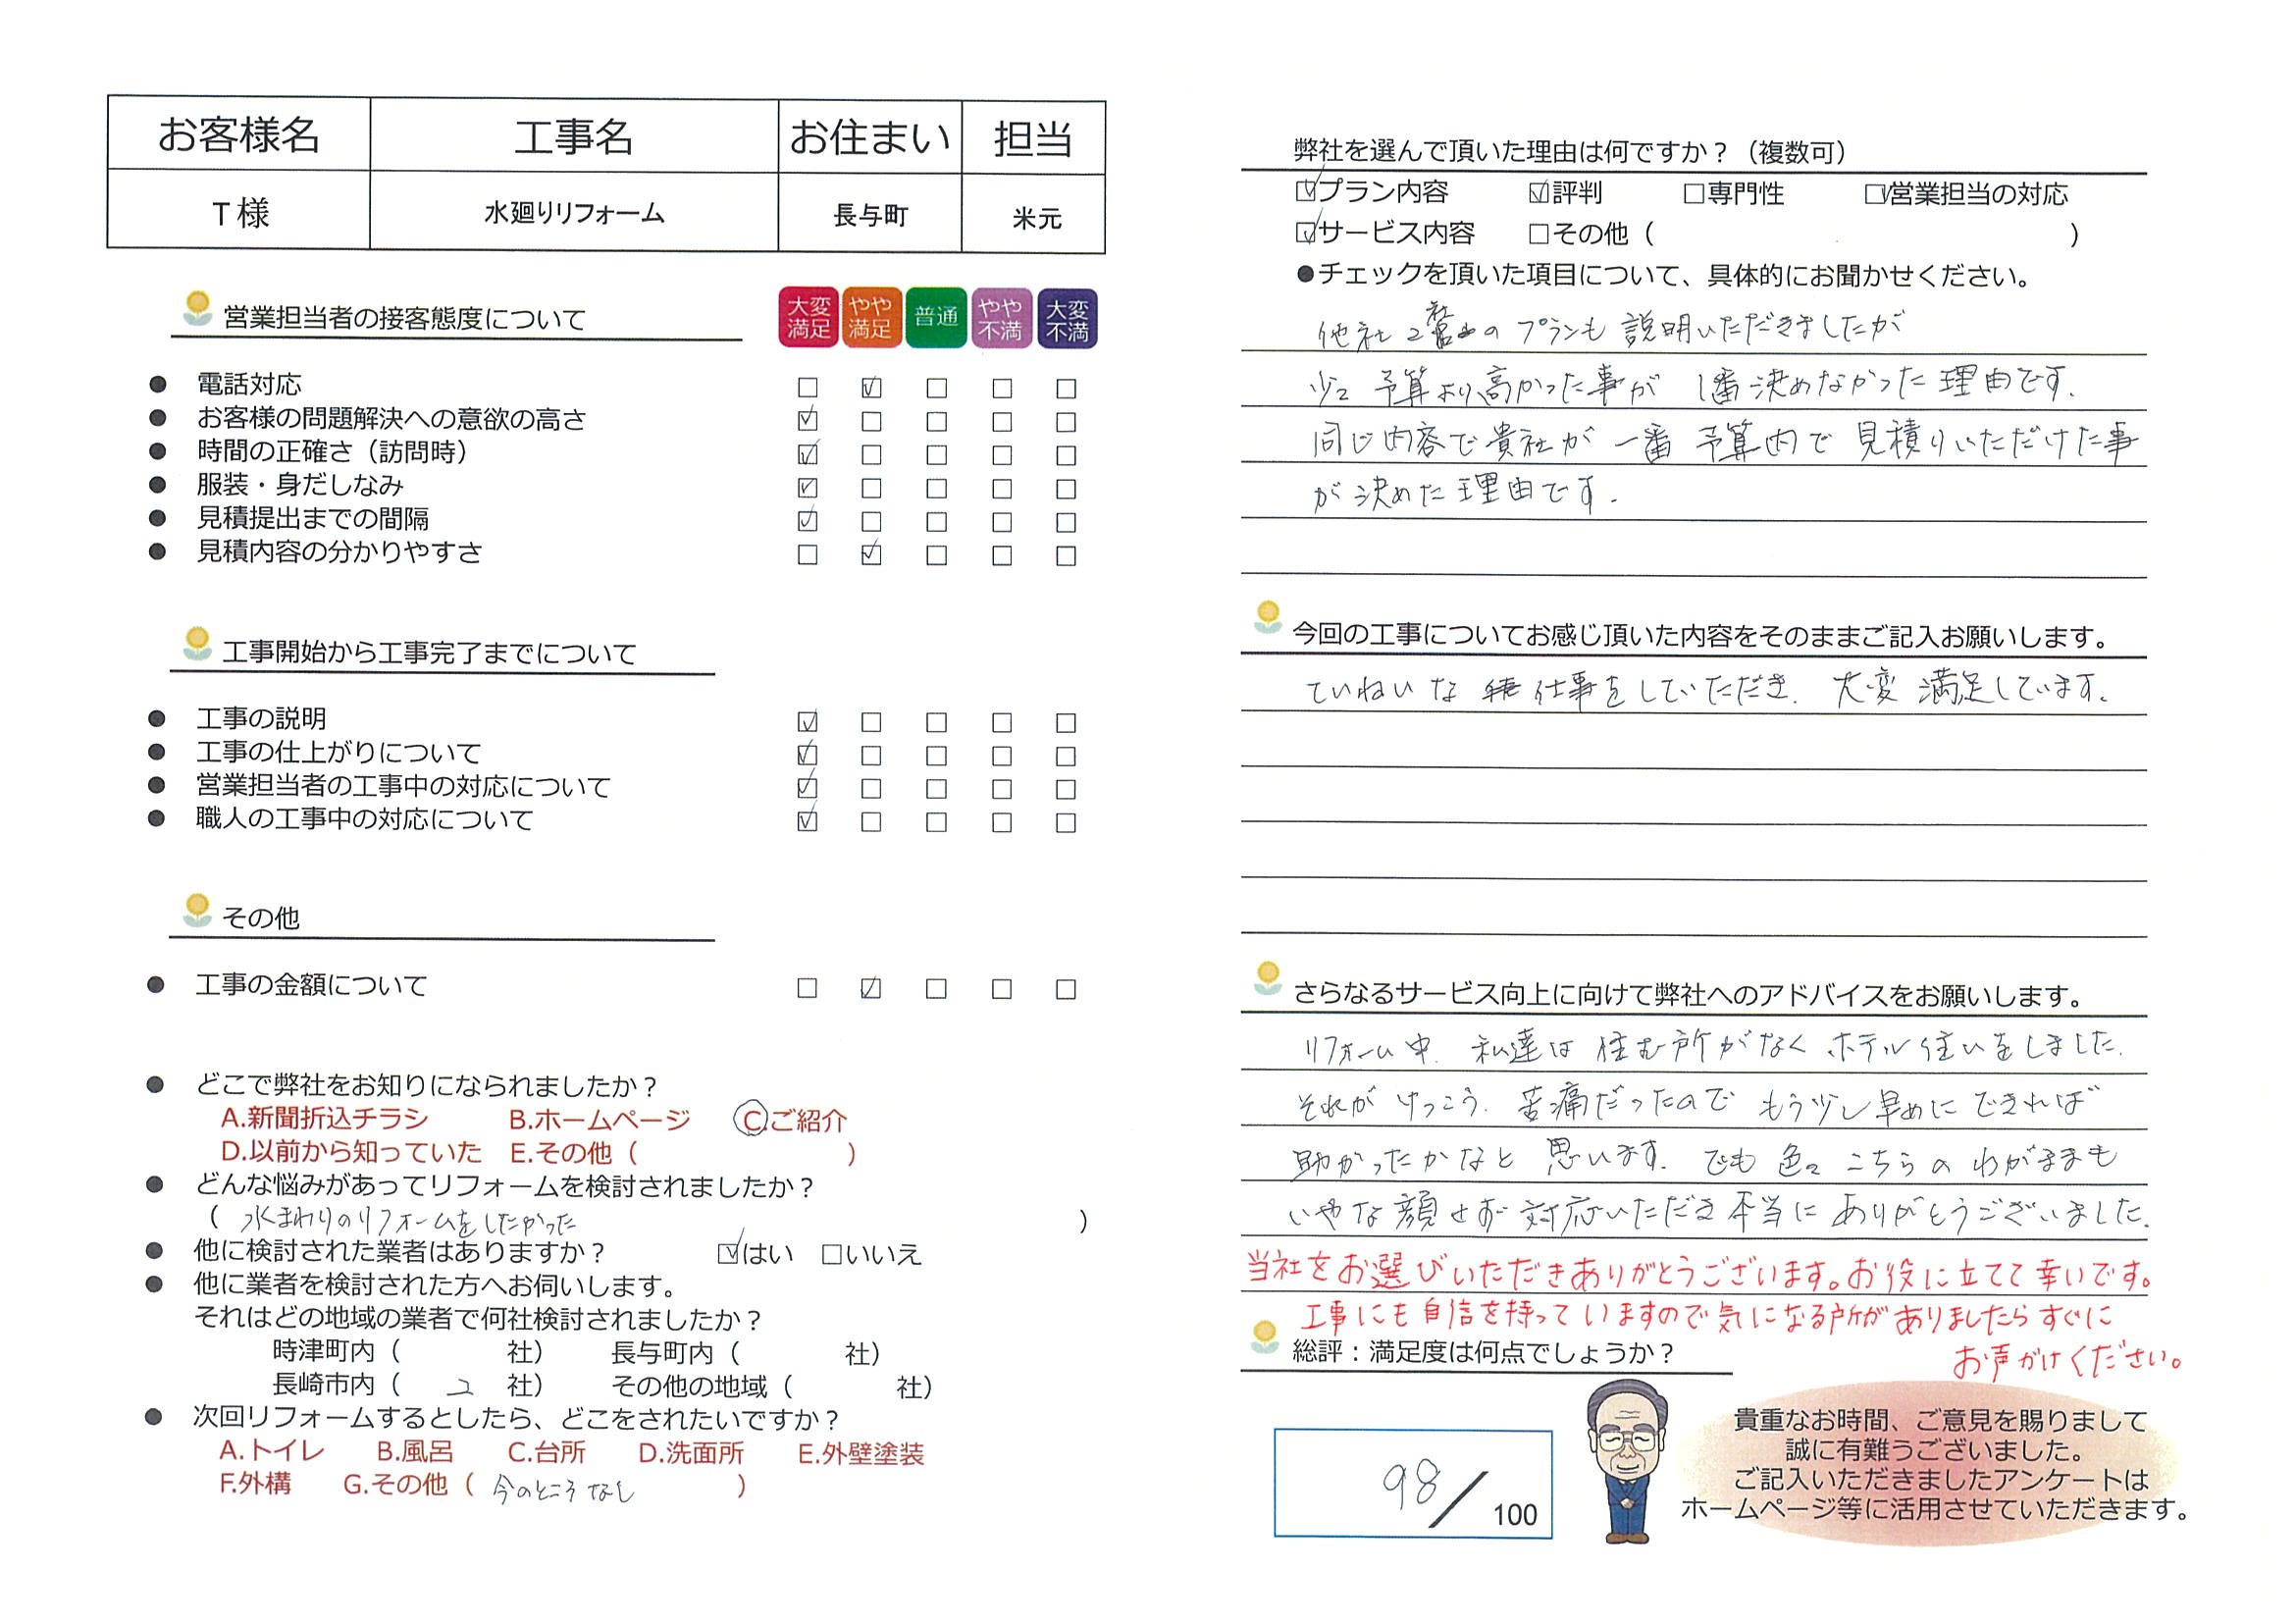 お客様名 工事名 お住まい 担当
T様 水廻りリフォーム 長与町 米元
営業担当者の接客態度について
大変満足 やや満足 普通 やや不満 大変不満
● 電話対応 □ ☑ □ □ □
● お客様の問題解決への意欲の高さ ☑ □ □ □ □
● 時間の正確さ（訪問時） ☑ □ □ □ □
● 服装・身だしなみ ☑ □ □ □ □
● 見積提出までの間隔 ☑ □ □ □ □
● 見積内容の分かりやすさ □ ☑ □ □ □
工事開始から工事完了までについて
● 工事の説明 ☑ □ □ □ □
● 工事の仕上がりについて ☑ □ □ □ □
● 営業担当者の工事中の対応について ☑ □ □ □ □
● 職人の工事中の対応について ☑ □ □ □ □
その他
● 工事の金額について □ ☑ □ □ □
● どこで弊社をお知りになられましたか？
A.新聞折込チラシ B.ホームページ C.ご紹介
D.以前から知っていた E.その他（ ）
● どんな悩みがあってリフォームを検討されましたか？
（ 水まわりのリフォームをしたかった ）
● 他に検討された業者はありますか？ ☑はい □いいえ
● 他に業者を検討された方へお伺いします。
それはどの地域の業者で何社検討されましたか？
時津町内（ 社） 長与町内（ 社）
長崎市内（ 2 社） その他の地域（ 社）
● 次回リフォームするとしたら、どこをされたいですか？
A.トイレ B.風呂 C.台所 D.洗面所 E.外壁塗装
F.外構 G.その他（ 今のところなし ）
弊社を選んで頂いた理由は何ですか？（複数可）
☑プラン内容 ☑評判 □専門性 ☑営業担当の対応
☑サービス内容 □その他（ ）
●チェックを頂いた項目について、具体的にお聞かせください。
他社2社のプランも説明いただきましたが
少々予算より高かった事が1番決めなかった理由です.
同じ内容で貴社が一番予算内で見積りいただけた事
が決めた理由です.
今回の工事についてお感じ頂いた内容をそのままご記入お願いします。
ていねいな仕事をしていただき、大変満足しています.
さらなるサービス向上に向けて弊社へのアドバイスをお願いします。
リフォーム中、私達は住む所がなくホテル住いをしました.
それがけっこう、苦痛だったのでもう少し早めにできれば
助かったかなと思います. でも色々こちらのわがままも
いやな顔せず対応いただき本当にありがとうございました.
当社をお選びいただきありがとうございます。お役に立てて幸いです。
工事にも自信を持っていますので気になる所がありましたらすぐに
お声がけください。
総評：満足度は何点でしょうか？
98/100
貴重なお時間、ご意見を賜りまして
誠に有難うございました。
ご記入いただきましたアンケートは
ホームページ等に活用させていただきます。